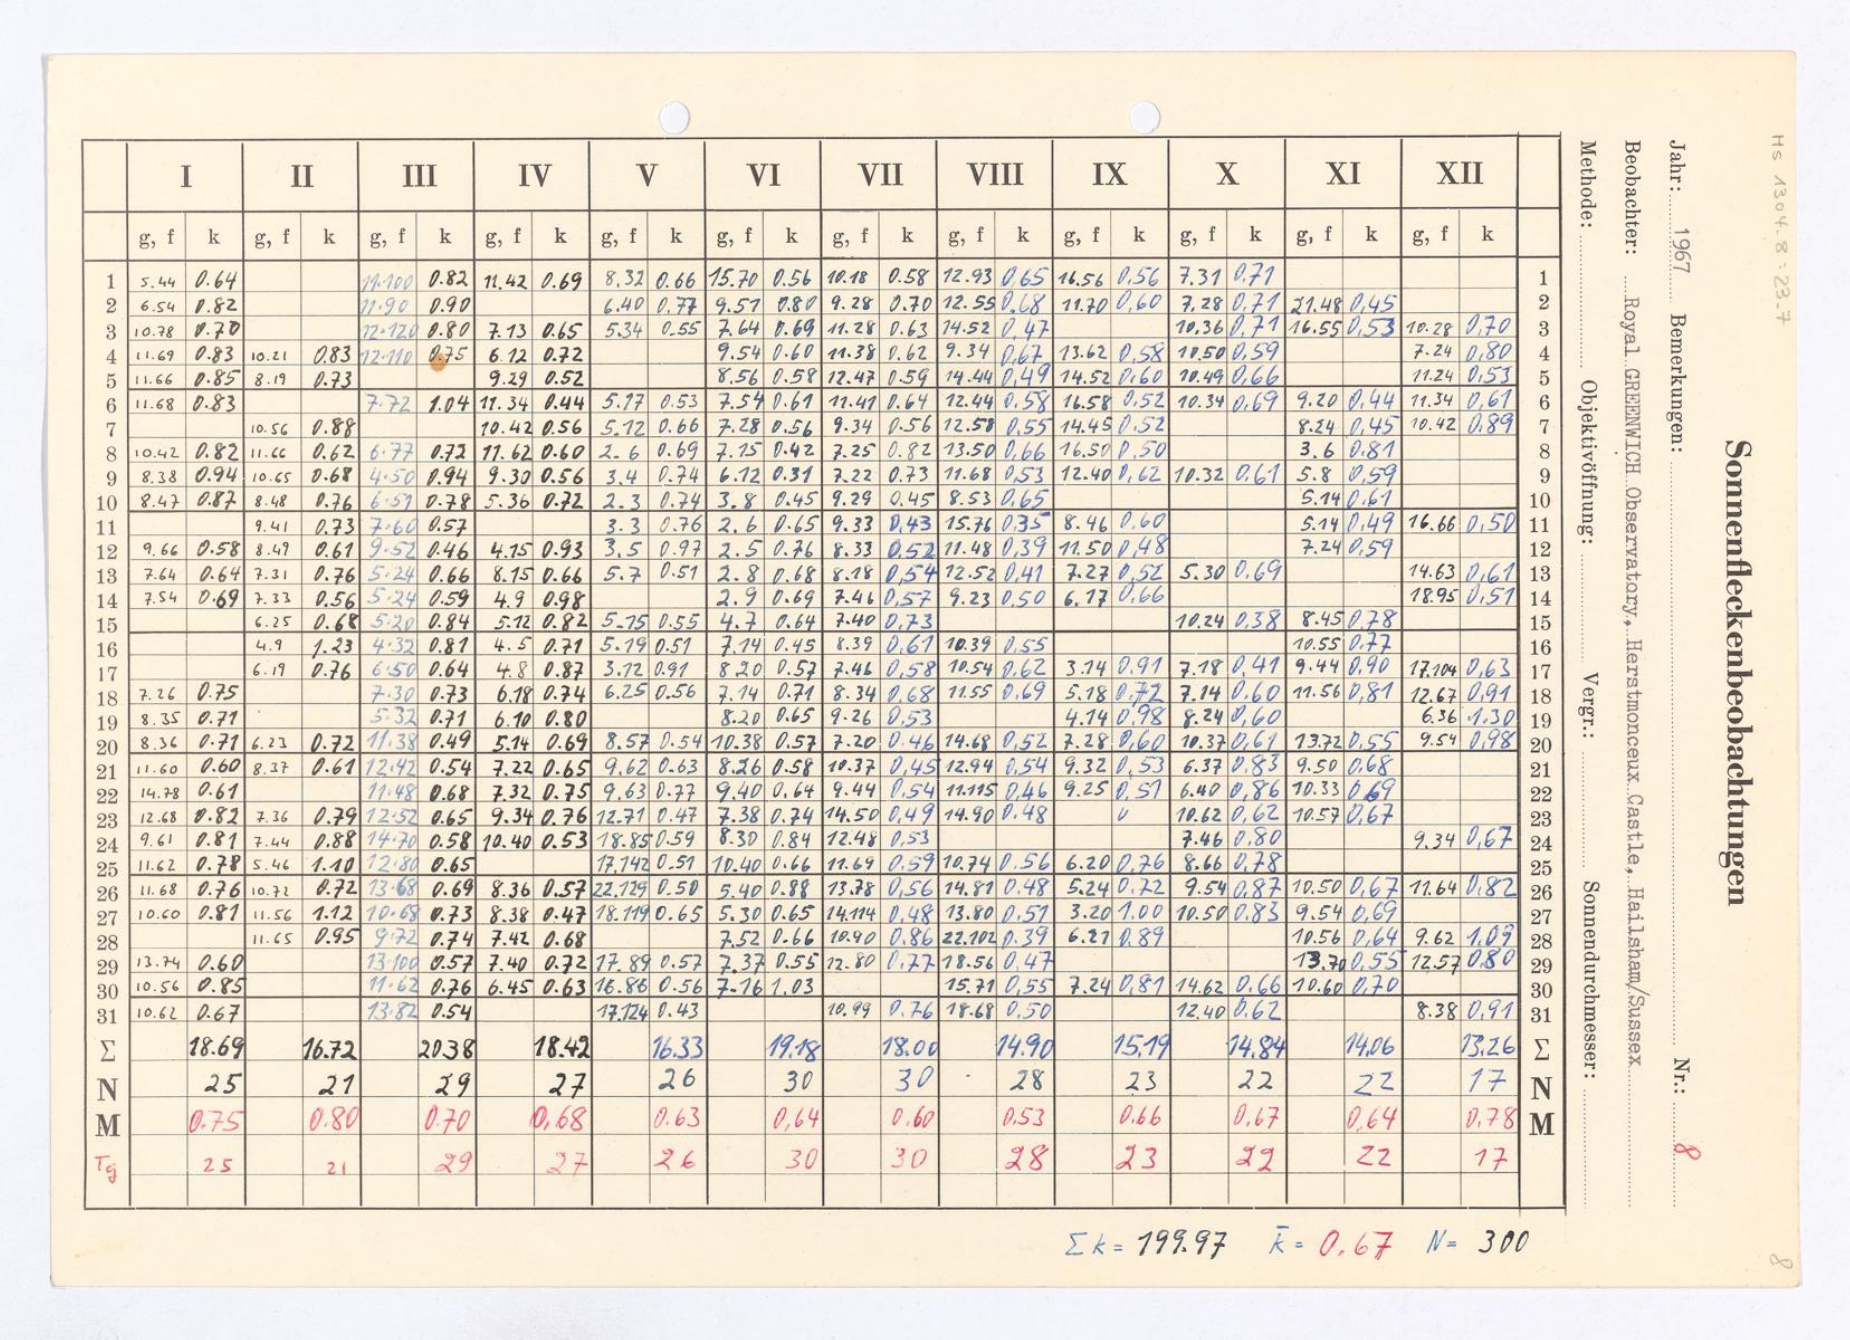 Hs 1304.8:23.7
Sonnenfleckenbeobachtungen
Jahr: 1967 Bemerkungen: Nr.: 8
Beobachter: Royal GREENWICH Observatory, Herstmonceux Castle, Hailsham/Sussex
Methode: Objektivöffnung: Vergr.: Sonnendurchmesser:
I II III IV V VI VII VIII IX X XI XII
g, f k g, f k g, f k g, f k g, f k g, f k g, f k g, f k g, f k g, f k g, f k g, f k
1 5.44 0.64 11.100 0.82 11.42 0.69 8.32 0.66 15.70 0.56 10.18 0.58 12.93 0,65 16.56 0,56 7.31 0,71 1
2 6.54 0.82 11.90 0.90 6.40 0.77 9.51 0.80 9.28 0.70 12.55 0.68 11.70 0,60 7.28 0,71 21.48 0,45 2
3 10.78 0.70 12.120 0.80 7.13 0.65 5.34 0.55 7.64 0.69 11.28 0.63 14.52 0,47 10.36 0,71 16.55 0,53 10.28 0,70 3
4 11.69 0.83 10.21 0.83 12.110 0.75 6.12 0.72 9.54 0.60 11.38 0.62 9.34 0,67 13.62 0,58 10.50 0,59 7.24 0,80 4
5 11.66 0.85 8.19 0.73 9.29 0.52 8.56 0.58 12.47 0.59 14.44 0,49 14.52 0,60 10.49 0,66 11.24 0,53 5
6 11.68 0.83 7.72 1.04 11.34 0.44 5.17 0.53 7.54 0.61 11.41 0.64 12.44 0.58 16.58 0,52 10.34 0,69 9.20 0,44 11.34 0,61 6
7 10.56 0.88 10.42 0.56 5.12 0.66 7.28 0.56 9.34 0.56 12.58 0,55 14.45 0,52 8.24 0,45 10.42 0,89 7
8 10.42 0.82 11.66 0.62 6.77 0.72 11.62 0.60 2.6 0.69 7.15 0.42 7.25 0.82 13.50 0,66 16.50 0,50 3.6 0.81 8
9 8.38 0.94 10.65 0.68 4.50 0.94 9.30 0.56 3.4 0.74 6.12 0.31 7.22 0.73 11.68 0,53 12.40 0,62 10.32 0,61 5.8 0,59 9
10 8.47 0.87 8.48 0.76 6.51 0.78 5.36 0.72 2.3 0.74 3.8 0.45 9.29 0.45 8.53 0,65 5.14 0.61 10
11 9.41 0.73 7.60 0.57 3.3 0.76 2.6 0.65 9.33 0,43 15.76 0,35 8.46 0,60 5.14 0,49 16.66 0,50 11
12 9.66 0.58 8.49 0.61 9.52 0.46 4.15 0.93 3.5 0.97 2.5 0.76 8.33 0,52 11.48 0,39 11.50 0,48 7.24 0,59 12
13 7.64 0.64 7.31 0.76 5.24 0.66 8.15 0.66 5.7 0.51 2.8 0.68 8.18 0,54 12.52 0,41 7.27 0,52 5.30 0,69 14.63 0,61 13
14 7.54 0.69 7.33 0.56 5.24 0.59 4.9 0.98 2.9 0.69 7.46 0,57 9.23 0,50 6.17 0,66 18.95 0,51 14
15 6.25 0.68 5.20 0.84 5.12 0.82 5.15 0.55 4.7 0.64 7.40 0,73 10.24 0,38 8.45 0,78 15
16 4.9 1.23 4.32 0.81 4.5 0.71 5.19 0.51 7.14 0.45 8.39 0,61 10.39 0,55 10.55 0,77 16
17 6.19 0.76 6.50 0.64 4.8 0.87 3.12 0.91 8.20 0.57 7.46 0,58 10.54 0,62 3.14 0,91 7.18 0,41 9.44 0,90 17.104 0,63 17
18 7.26 0.75 7.30 0.73 6.18 0.74 6.25 0.56 7.14 0.71 8.34 0,68 11.55 0,69 5.18 0,72 7.14 0,60 11.56 0,81 12.67 0,91 18
19 8.35 0.71 5.32 0.71 6.10 0.80 8.20 0.65 9.26 0,53 4.14 0,98 8.24 0,60 6.36 1.30 19
20 8.36 0.71 6.23 0.72 11.38 0.49 5.14 0.69 8.57 0.54 10.38 0.57 7.20 0.46 14.68 0,52 7.28 0,60 10.37 0,61 13.72 0,55 9.54 0,98 20
21 11.60 0.60 8.37 0.61 12.42 0.54 7.22 0.65 9.62 0.63 8.26 0.58 10.37 0,45 12.94 0,54 9.32 0,53 6.37 0,83 9.50 0.68 21
22 14.78 0.61 11.48 0.68 7.32 0.75 9.63 0.77 9.40 0.64 9.44 0,54 11.115 0,46 9.25 0,51 6.40 0,86 10.33 0,69 22
23 12.68 0.82 7.36 0.79 12.52 0.65 9.34 0.76 12.71 0.47 7.38 0.74 14.50 0,49 14.90 0.48 10.62 0,62 10.57 0,67 23
24 9.61 0.81 7.44 0.88 14.70 0.58 10.40 0.53 18.85 0.59 8.30 0.84 12.48 0,53 7.46 0,80 9.34 0,67 24
25 11.62 0.78 5.46 1.10 12.80 0.65 17.142 0.51 10.40 0.66 11.69 0.59 10.74 0.56 6.20 0,76 8.66 0,78 25
26 11.68 0.76 10.72 0.72 13.68 0.69 8.36 0.57 22.129 0.50 5.40 0.88 13.78 0,56 14.81 0.48 5.24 0.72 9.54 0,87 10.50 0,67 11.64 0,82 26
27 10.60 0.81 11.56 1.12 10.68 0.73 8.38 0.47 18.119 0.65 5.30 0.65 14.114 0,48 13.80 0.51 3.20 1.00 10.50 0,83 9.54 0,69 27
28 11.65 0.95 9.72 0.74 7.42 0.68 7.52 0.66 10.90 0.86 22.102 0.39 6.21 0,89 10.56 0,64 9.62 1.09 28
29 13.74 0.60 13.100 0.57 7.40 0.72 17.89 0.57 7.37 0.55 12.80 0,77 18.56 0,47 13.70 0,55 12.57 0,80 29
30 10.56 0.85 11.62 0.76 6.45 0.63 16.86 0.56 7.16 1.03 15.71 0,55 7.24 0,81 14.62 0.66 10.60 0,70 30
31 10.62 0.67 13.82 0.54 17.124 0.43 10.99 0.76 18.68 0.50 12.40 0.62 8.38 0,91 31
Σ 18.69 16.72 20.38 18.42 16.33 19.18 18.00 14.90 15.19 14.84 14,06 13.26 Σ
N 25 21 29 27 26 30 30 28 23 22 22 17 N
M 0.75 0.80 0.70 0,68 0.63 0,64 0.60 0.53 0.66 0,67 0,64 0,78 M
Tg 25 21 29 27 26 30 30 28 23 22 22 17
Σ k = 199.97 k̄ = 0.67 N = 300
8